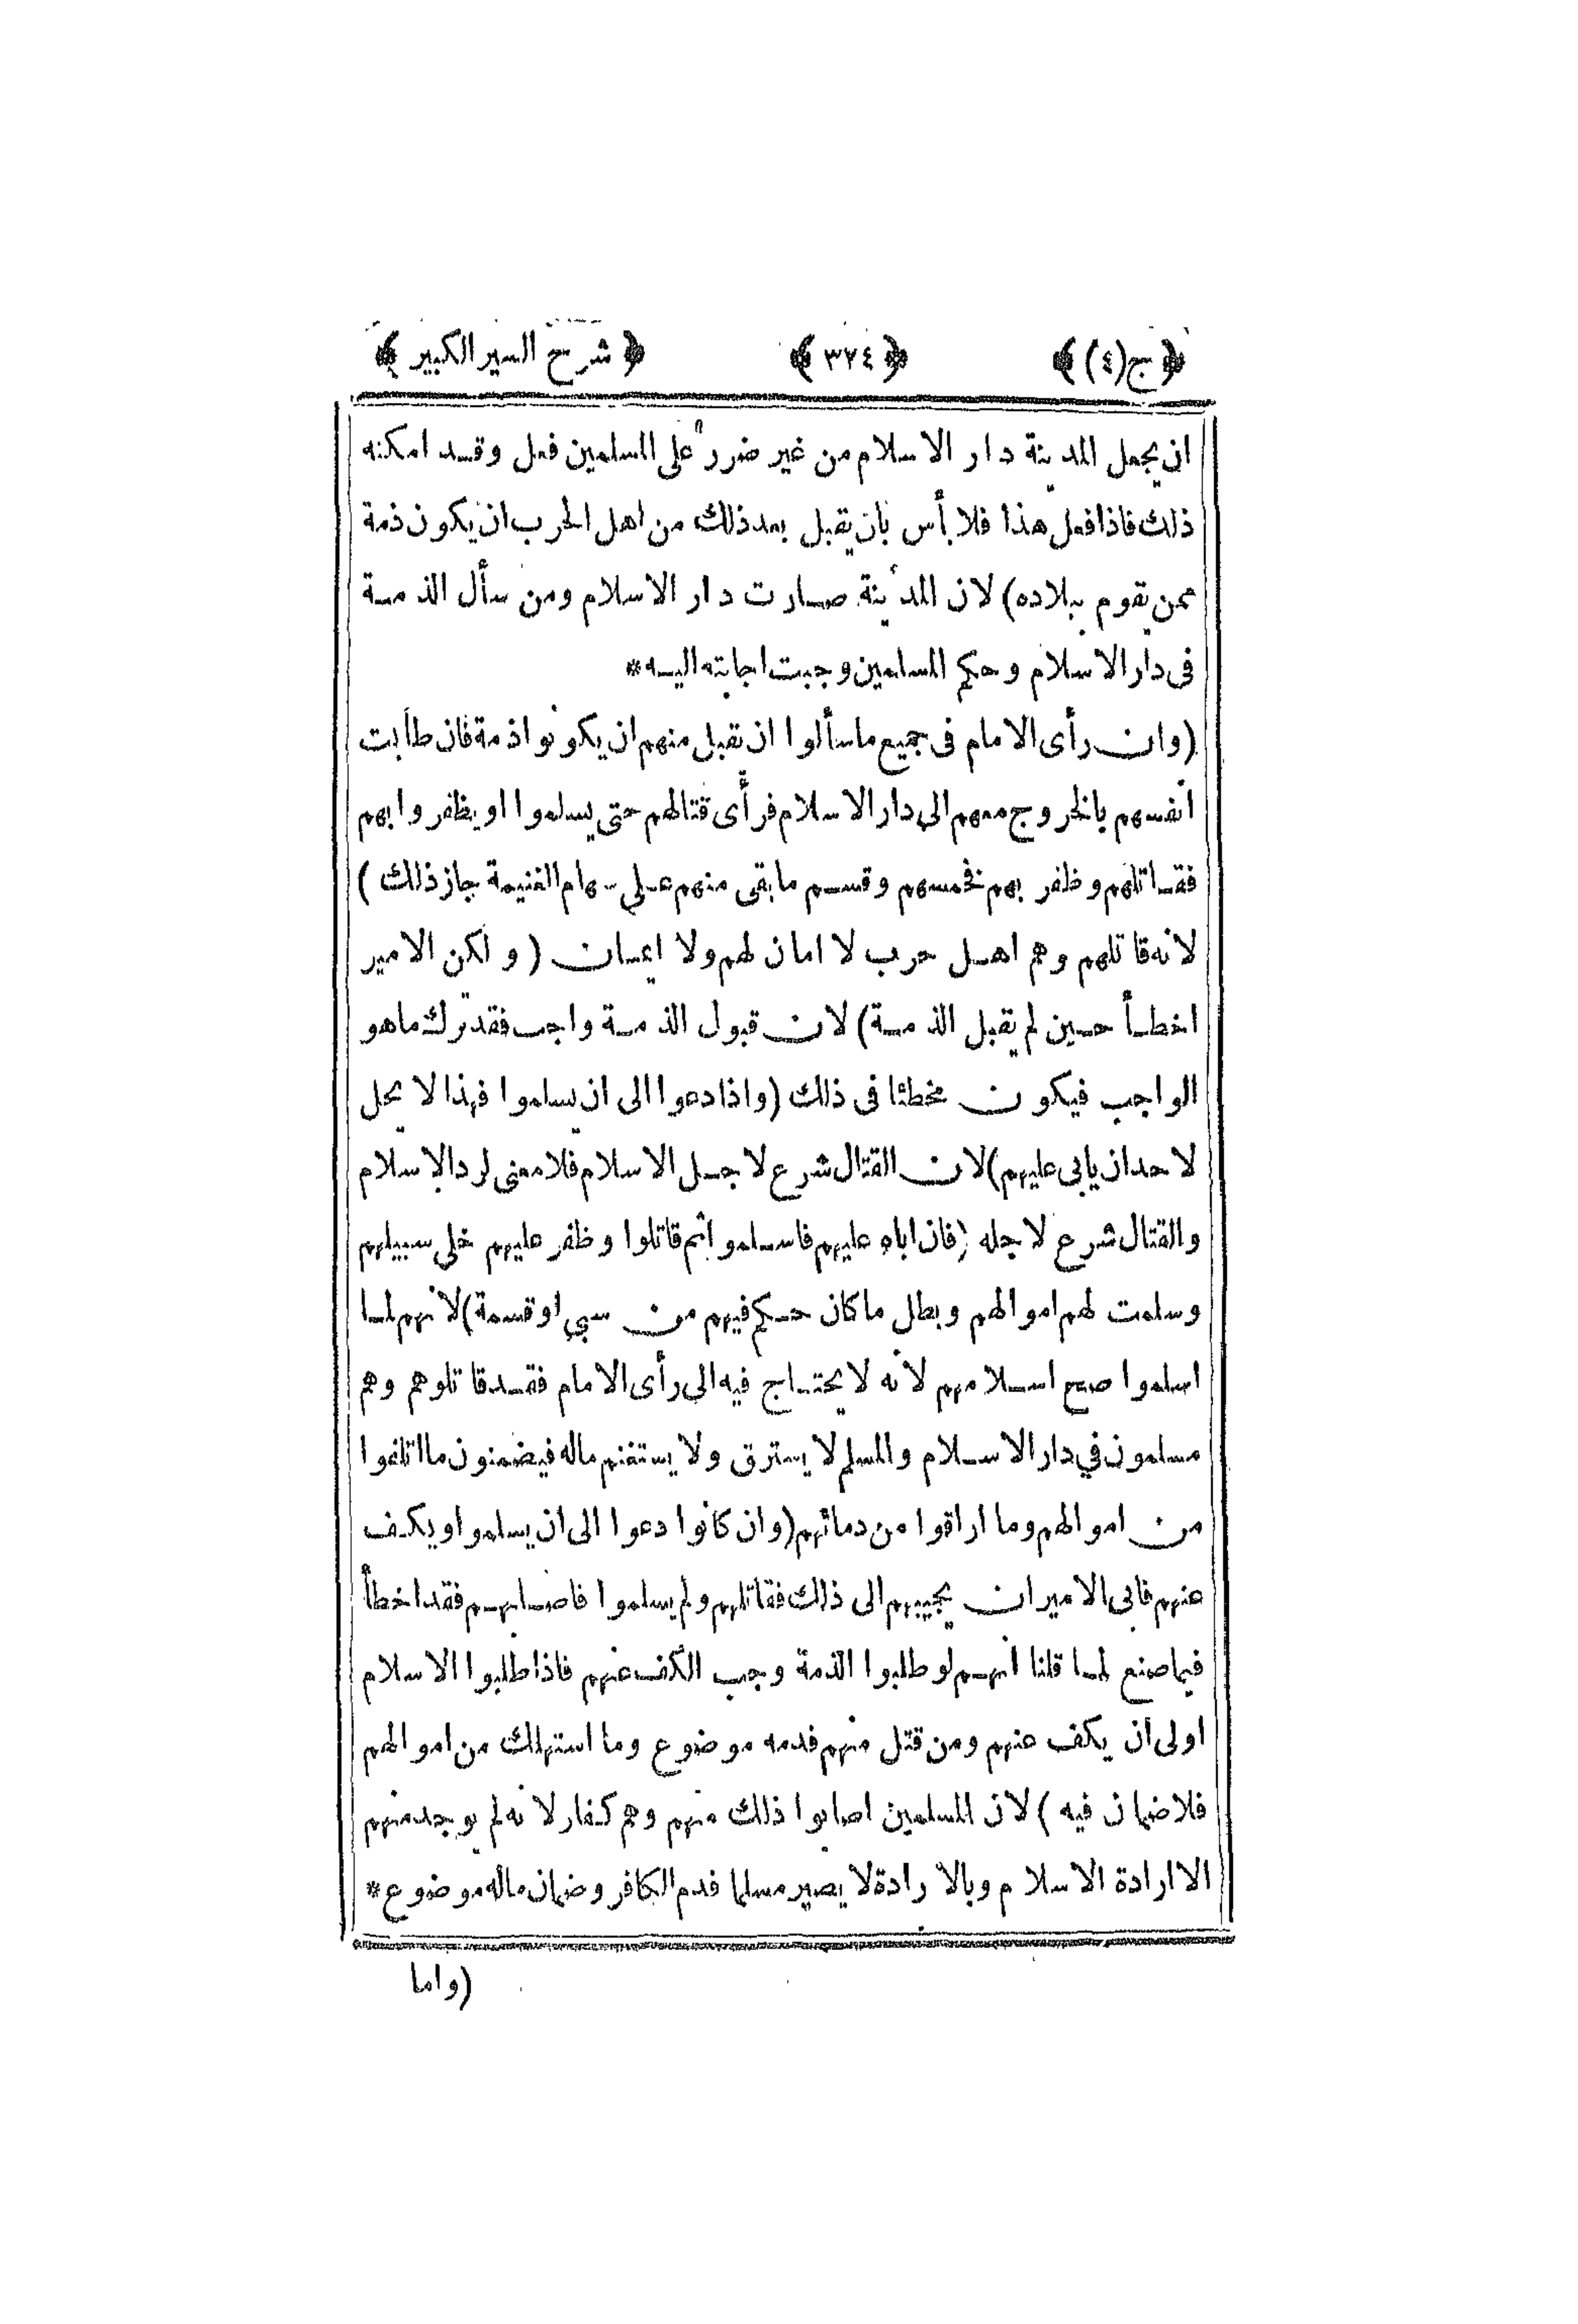 ﴿ ج(٤) ﴾ ﴿ ٣٢٤ ﴾ ﴿ شرح السير الكبير ﴾
ان يجعل المدينة دار الاسلام من غير ضرر على المسلمين فعل وقد امكنه
ذلك فاذا فعل هذا فلا بأس بان يقبل بعد ذلك من اهل الحرب ان يكون ذمة
ممن يقوم ببلاده) لان المدينة صارت دار الاسلام ومن سأل الذمة
فى دار الاسلام وحكم المسلمين وجبت اجابته اليه*
(وان رأى الامام فى جميع ما سألوا ان نقبل منهم ان يكونوا ذمة فان طابت
انفسهم بالخروج معهم الى دار الاسلام فرأى قتالهم حتى يسلموا او يظفروا بهم
فقاتلهم وظفر بهم فخمسهم وقسم ما بقى منهم على سهام الغنيمة جاز ذلك)
لانه قاتلهم وهم اهل حرب لا امان لهم ولا ايمان (ولكن الامير
اخطأ حين لم يقبل الذمة) لان قبول الذمة واجب فقد ترك ما هو
الواجب فيكون مخطئا فى ذلك (واذا دعوا الى ان يسلموا فهذا لا يحل
لاحد ان يابى عليهم) لان القتال شرع لاجل الاسلام فلا معنى لرد الاسلام
والقتال شرع لاجله (فان اباه عليهم فاسلموا ثم قاتلوا وظفر عليهم خلى سبيلهم
وسلمت لهم اموالهم وبطل ما كان حكم فيهم من سبي او قسمة) لانهم لما
اسلموا صح اسلامهم لانه لا يحتاج فيه الى رأى الامام فقد قاتلوهم وهم
مسلمون في دار الاسلام والمسلم لا يسترق ولا يستغنم ماله فيضمنون ما اتلفوا
من اموالهم وما اراقوا من دمائهم (وان كانوا دعوا الى ان يسلموا ويكف
عنهم فابى الامير ان يجيبهم الى ذلك فقاتلهم ولم يسلموا فاصابهم فقد اخطأ
فيما صنع لما قلنا انهم لو طلبوا الذمة وجب الكف عنهم فاذا طلبوا الاسلام
اولى ان يكف عنهم ومن قتل منهم فدمه موضوع وما استهلك من اموالهم
فلا ضمان فيه) لان المسلمين اصابوا ذلك منهم وهم كفار لانه لم يوجد منهم
الا ارادة الاسلام وبالارادة لا يصير مسلما فدم الكافر وضمان ماله موضوع*
(واما